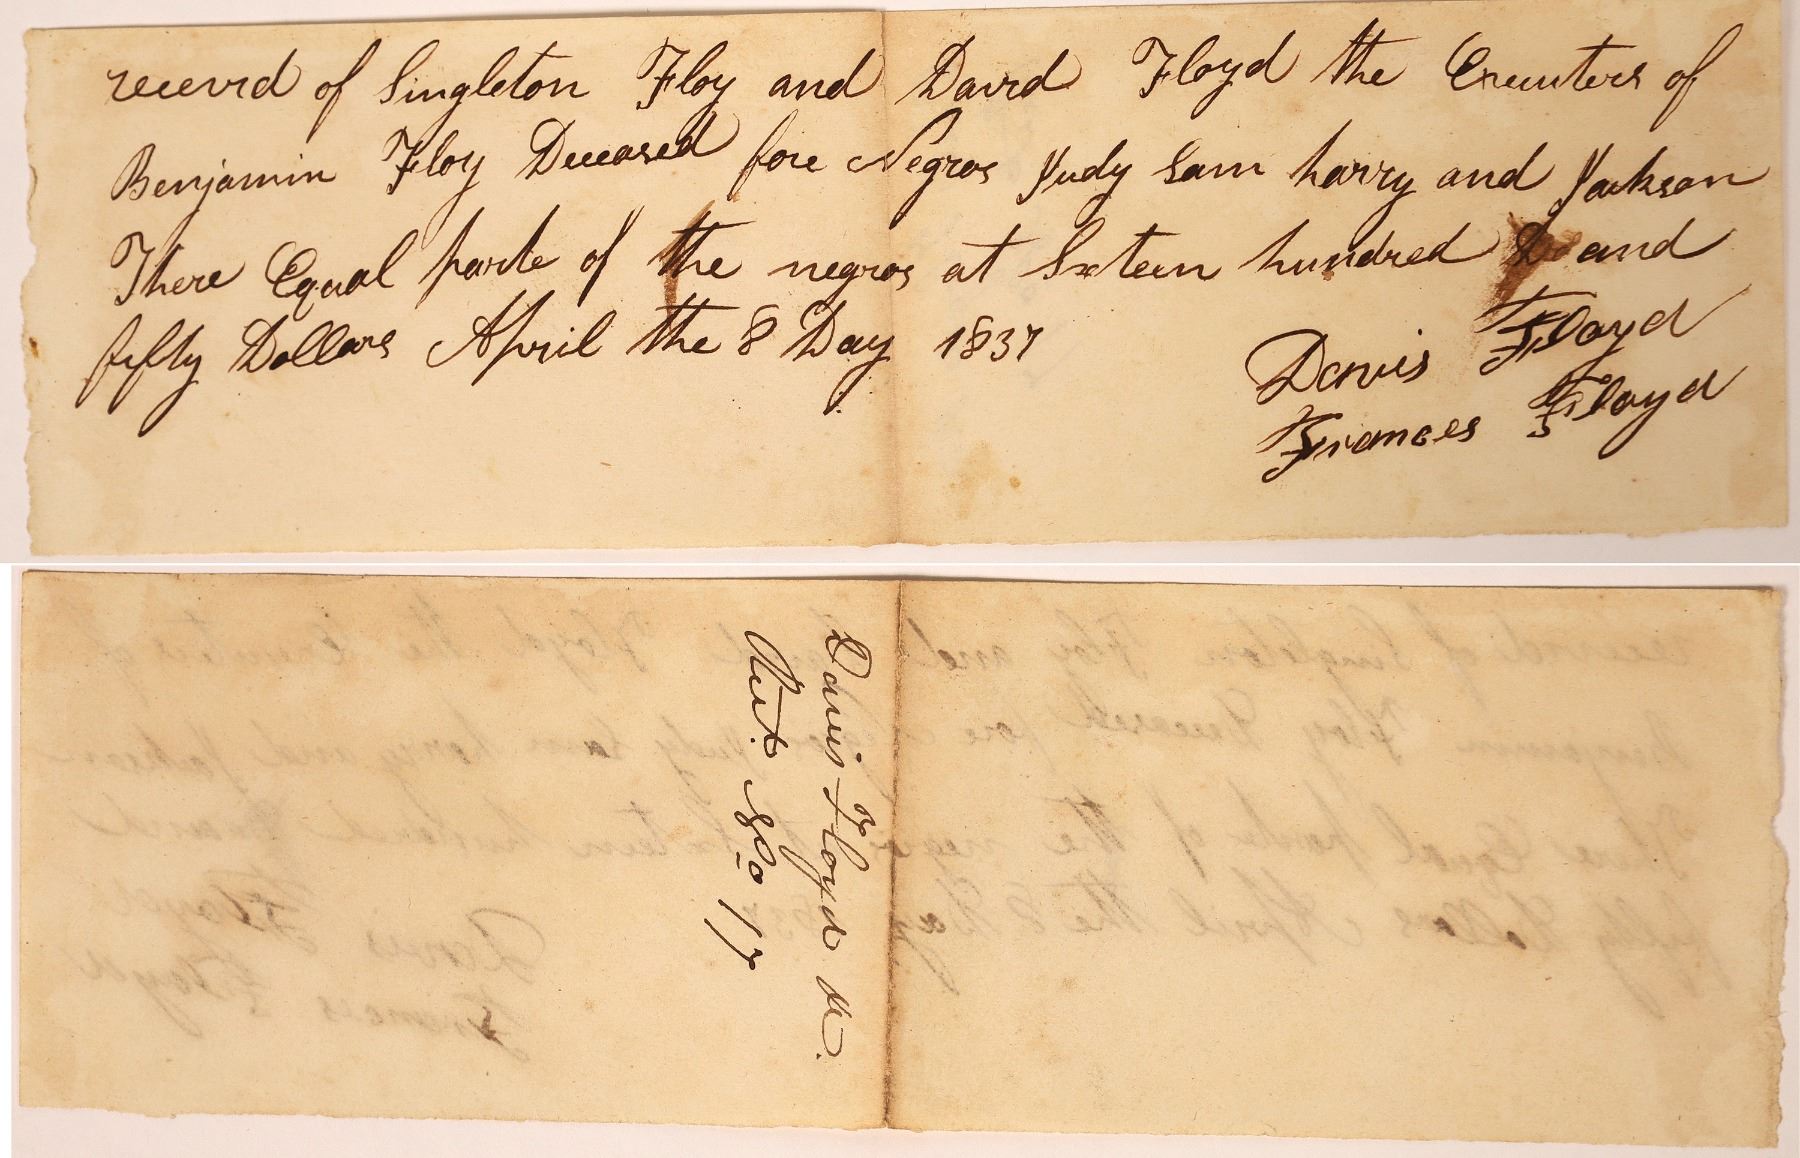 recevid of Singleton Floy and David Floyd the Executers of
Benjamin Floy Deceased fore Negros Judy Sam harry and Jackson
There Equal parte of the negros at Sixteen hundred and
fifty Dollars April the 8 Day 1837
Davis Floyd
Frances Floyd
Davis Floyd &c.
Rect. No 17